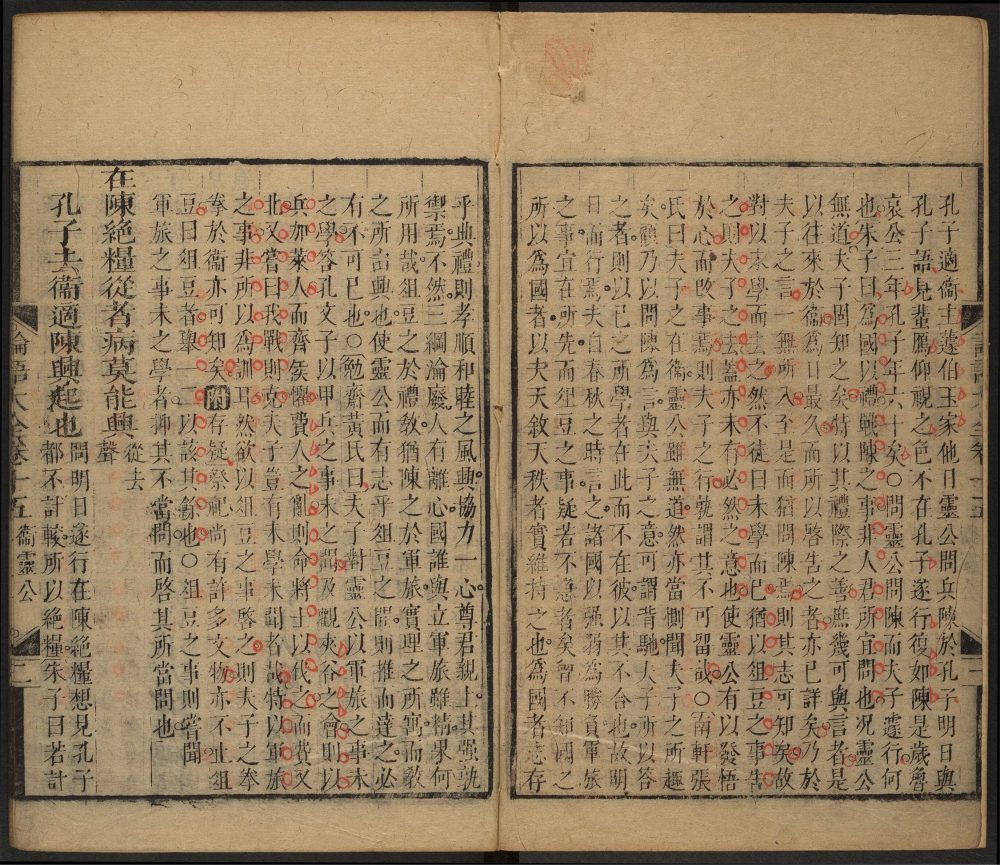 孔子適衛主蘧伯玉家他日靈公問兵陳於孔子明日與
孔子語見蜚鴈仰視之色不在孔子遂行復如陳是歲魯
哀公三年孔子年六十矣○問靈公問陳而夫子遂行何
也朱子曰為國以禮戰陳之事非人君所宜問也況靈公
無道夫子固知之矣特以其禮際之善庶幾可與言者是
以往來於衛為日最久而所以啓告之者亦已詳矣乃於
夫子之言一無所入至是而猶問陳焉則其志可知矣故
對以未學而去之然不徒曰未學而已猶以俎豆之事告
之則夫子之去蓋亦未有必然之意也使靈公有以發悟
於心而改事焉則夫子之行孰謂其不可留哉○南軒張
氏曰夫子之在衛靈公雖無道然亦當側聞夫子之所趣
矣顧乃以問陳為言與夫子之意可謂背馳夫子所以答
之者則以已之所學者在此而不在彼以其不合也故明
日而行焉夫自春秋之時言之諸國以强弱為勝負軍旅
之事宜在所先而俎豆之事疑若不急者矣曾不知國之
所以為國者以夫天敘天秩者實維持之也為國者志存
乎典禮則孝順和睦之風興協力一心尊君親上其强孰
禦焉不然三綱淪廢人有離心國誰與立軍旅雖精果何
所用哉俎豆之於禮敎猶陳之於軍旅實理之所寓而敎
之所詔興也使靈公而有志乎俎豆之間則推而達之必
有不可已也○勉齋黃氏曰夫子對靈公以軍旅之事未
之學答孔文子以甲兵之事未之聞及觀夾谷之會則以
兵加萊人而齊侯懼費人之亂則命將士以伐之而費又
北又嘗曰我戰則克夫子豈有未學未聞者哉特以軍旅
之事非所以為訓耳然欲以俎豆之事啓之則夫子之拳
拳於衛亦可知矣附存疑祭祀尚有許多文物亦不止俎
豆曰俎豆者舉一二以該其餘也○俎豆之事則嘗聞
軍旅之事未之學者抑其不當問而啓其所當問也
在陳絶糧從者病莫能興從去聲
孔子去衛適陳興起也問明日遂行在陳絶糧想見孔子
都不計較所以絶糧朱子曰若計
論語大全卷十五 衞靈公 二